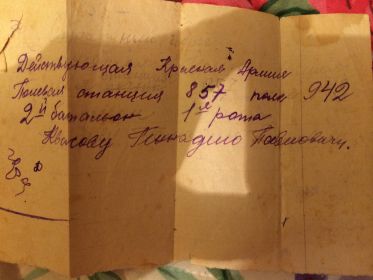 Действующая Красная Армия
Полевая станция 857 полк 942
2й батальон 1я рота
Геннадию Павловичу.